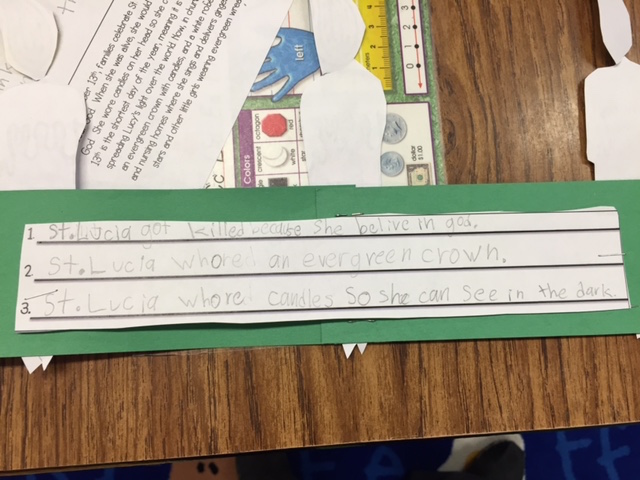 er 13th, families celebrate St
When she was alive, she would
God. She wore candles on her head so she c
13th is the shortest day of the year, meaning it is
spreading Lucy's light over the world. Now, in church
an evergreen crown with candles, and a white robe
and nursing homes where she sings and delivers ginger
stars and other little girls wearing evergreen wrea
left
Colors
octagon
red
crescent
white
star
dollar
$1.00
0 1 2 3
1. St. Lucia got killed because she belive in god.
2. St. Lucia whored an evergreen crown.
3. St. Lucia whored candles so she can see in the dark.